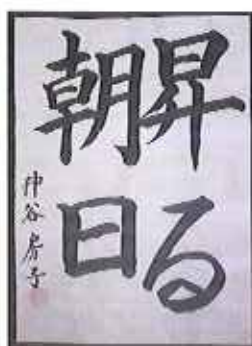 昇る
朝日
神谷房子